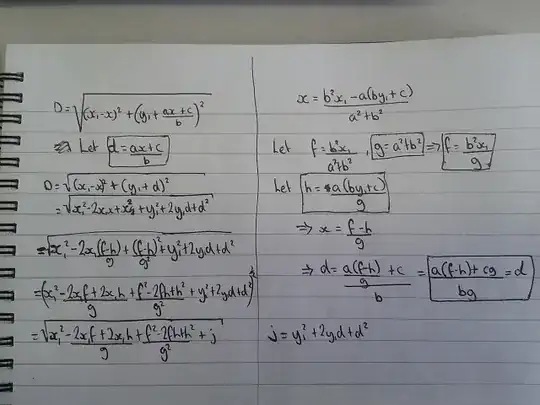 D = √((x₁-x)² + (y₁ + (ax+c)/b)²)
Let d = (ax+c)/b
D = √((x₁-x)² + (y₁+d)²)
= √(x₁² - 2x₁x + x² + y₁² + 2y₁d + d²)
= √(x₁² - 2x₁(f-h)/g + (f-h)²/g² + y₁² + 2y₁d + d²)
= (x₁² - (2x₁f + 2x₁h)/g + (f² - 2fh + h²)/g² + y₁² + 2y₁d + d²)
= √(x₁² - (2x₁f + 2x₁h)/g + (f² - 2fh + h²)/g² + j)
x = (b²x₁ - a(by₁+c))/(a²+b²)
Let f = b²x₁/(a²+b²) , g = a²+b² ⇒ f = b²x₁/g
Let h = a(by₁+c)/g
⇒ x = (f-h)/g
⇒ d = (a(f-h)/g + c)/b = (a(f-h) + cg)/bg = d
j = y₁² + 2y₁d + d²